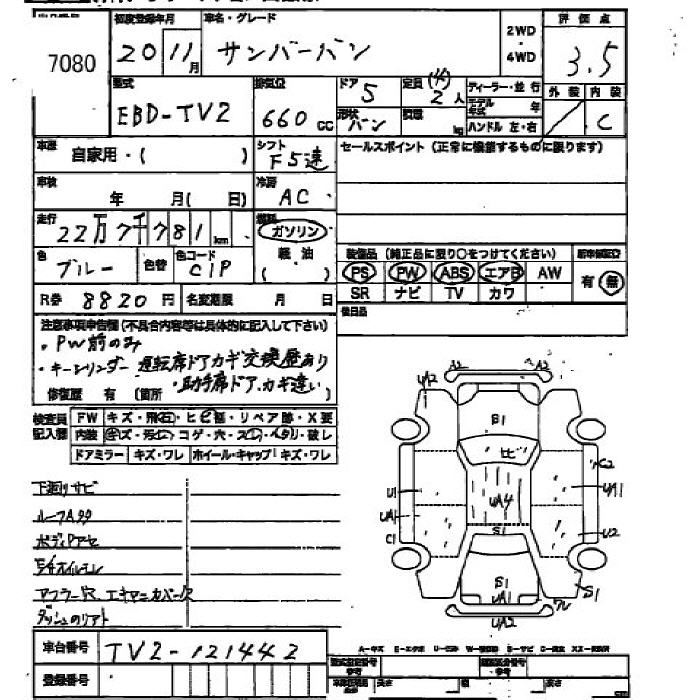 7080
初度登録年月
20 11月
車名・グレード
サンバーバン
2WD
・
4WD
評価点
3.5
型式
EBD-TV2
排気量
660 cc
ドア
5
定員 (4)
2人
形状
バン
積載 kg
ディーラー・並行
モデル年式 年
ハンドル 左・右
外装 内装
C
車歴
自家用・( )
シフト
F5速
セールスポイント (正常に機能するものに限ります)
車検
年 月( 日)
冷房
AC
走行
22万7千781 km
燃料
ガソリン
軽油
( )
色
ブルー
色替
色コード
C1P
装備品 (純正品に限り○をつけてください)
PS PW ABS エアB AW
SR ナビ TV カワ
有・無
R券 8820円
名変期限 月 日
後日品
注意事項申告欄(不具合内容等は具体的に記入して下さい)
・PW前のみ
・キーシリンダー 運転席ドアカギ交換歴あり
・助手席ドア、カギ違い
修復歴 有 (箇所
検査員
記入欄
FW キズ・飛石・ヒビ・リペア跡・X要
内装 キズ・汚れ・コゲ・穴・スレ・ヘタリ・破レ
ドアミラー キズ・ワレ ホイール・キャップ キズ・ワレ
下廻りサビ
ルーフAタタ
ボディアセ
マフラーR、エキマニカバーR
A2 A2
UA2
S1
ヒビ
C2
U1
UA4
UA1
UA1
C1
S1
U2
S1
UA1
S1
UA2
車台番号
TV2-121442
登録番号
A-キズ
長さ
幅
高さ